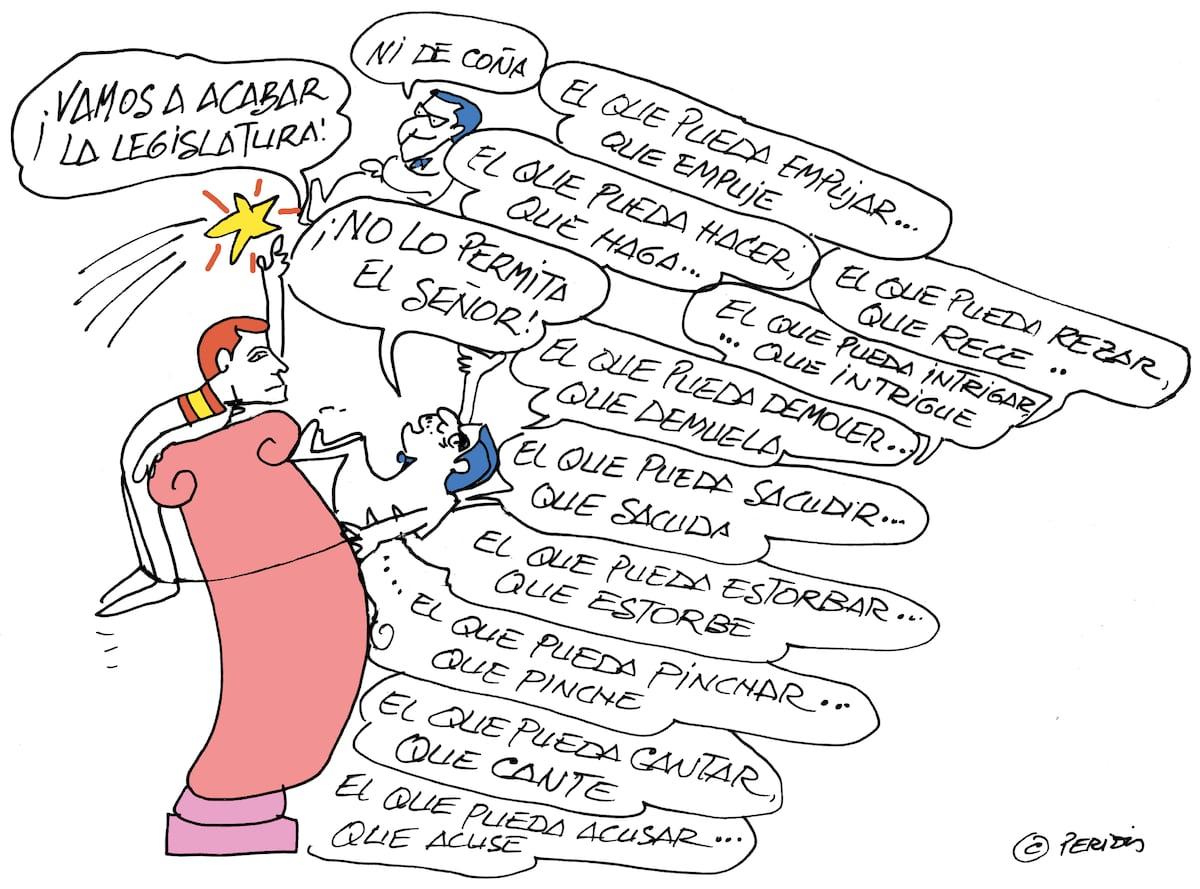 NI DE COÑA
¡VAMOS A ACABAR
¡LA LEGISLATURA!
EL QUE PUEDA EMPUJAR...
QUE EMPUJE
EL QUE PUEDA HACER,
QUE HAGA...
¡NO LO PERMITA
EL SEÑOR!
EL QUE PUEDA REZAR,
QUE RECE..
EL QUE PUEDA INTRIGAR,
... QUE INTRIGUE
EL QUE PUEDA DEMOLER...
QUE DEMUELA
EL QUE PUEDA SACUDIR...
QUE SACUDA
EL QUE PUEDA ESTORBAR...
QUE ESTORBE
...EL QUE PUEDA PINCHAR...
QUE PINCHE
EL QUE PUEDA CANTAR,
QUE CANTE
EL QUE PUEDA ACUSAR...
QUE ACUSE
© PERIDIS